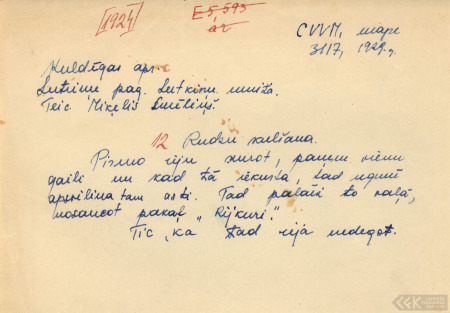 [1924]
E 5,593
CVVM, mape
3117, 1929.g.
Kuldīgas apr.
Lutriņu pag. Lutriņu muiža.
Teic. Miķelis
12 Rudzu kulšana.
Pirmo riju kurot, paņem vienu
gaili un kad tā iekurta, tad ugunī
apsvilina tam asti. Tad palaiž to vaļā,
nosaucot pakaļ „Rijkuri."
Tic, ka tad rija nedegot.